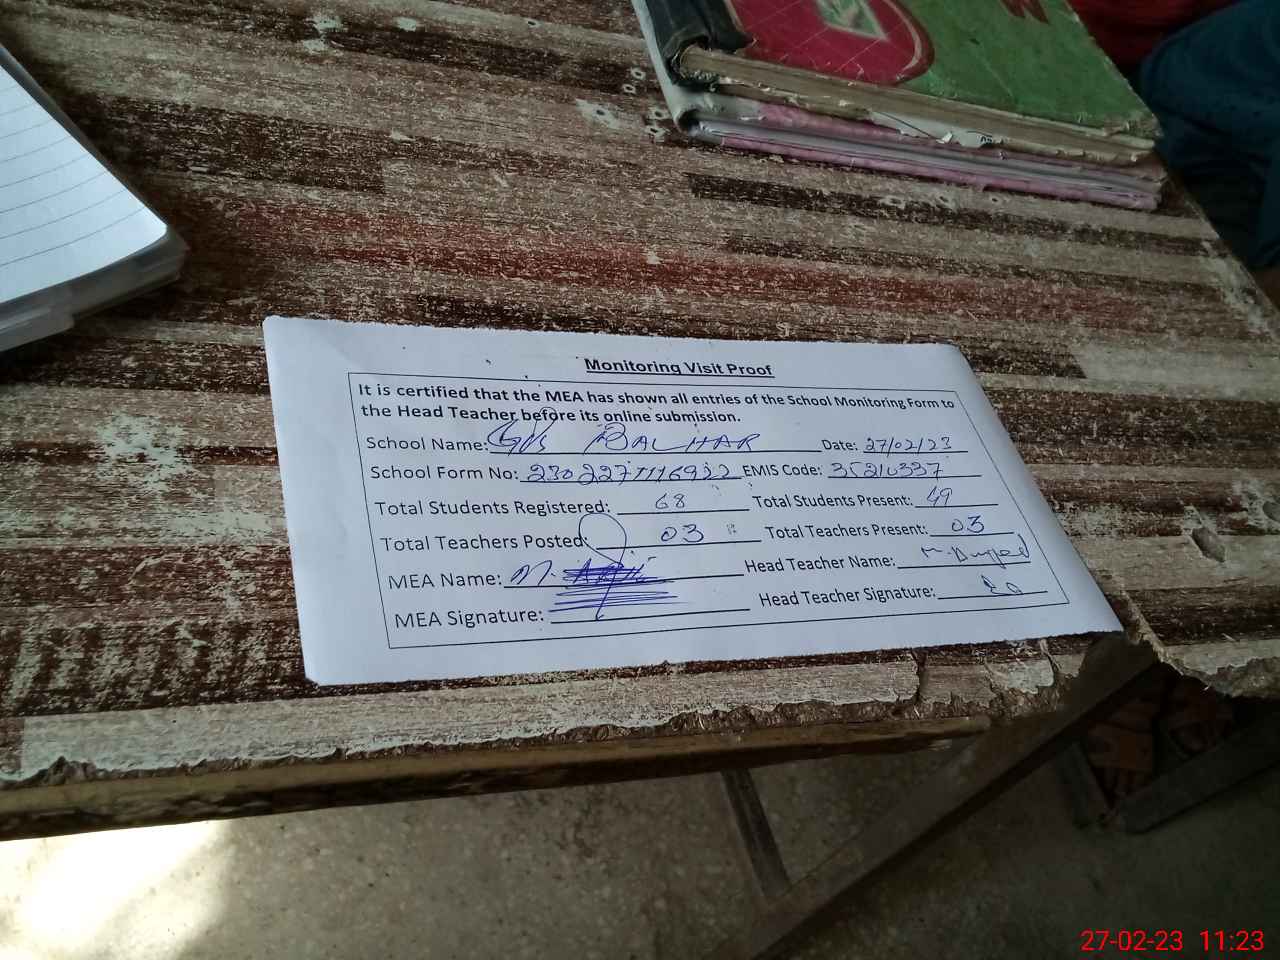 Monitoring Visit Proof
It is certified that the MEA has shown all entries of the School Monitoring Form to
the Head Teacher before its online submission.
School Name: BALHAR Date: 27/02/23
School Form No: EMIS Code: 35210337
Total Students Registered: 68 Total Students Present: 49
Total Teachers Posted: 03 Total Teachers Present: 03
MEA Name: M. Head Teacher Name:
MEA Signature: Head Teacher Signature:
27-02-23 11:23